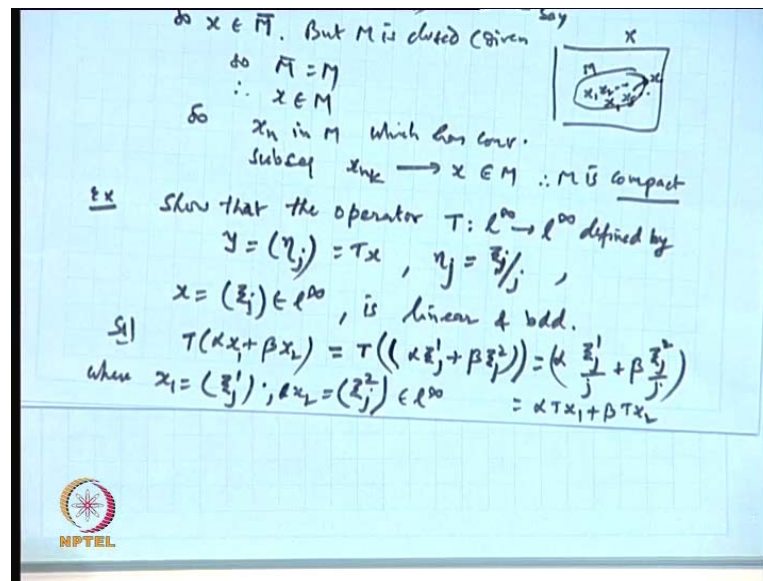 so x ∈ M̄. But M is closed (Given
say
so M̄ = M
∴ x ∈ M
X
M
x₁ x₂ ... x
So xₙ in M which has conv.
Subseq xₙₖ → x ∈ M ∴ M is compact
Ex Show that the operator T: l^∞ → l^∞ defined by
y = (ηⱼ) = Tx , ηⱼ = ξⱼ/j ,
x = (ξⱼ) ∈ l^∞ , is linear & bdd.
Sol T(αx₁ + βx₂) = T((αξⱼ¹ + βξⱼ²)) = (α ξⱼ¹/j + β ξⱼ²/j)
where x₁ = (ξⱼ¹) ; & x₂ = (ξⱼ²) ∈ l^∞ = αTx₁ + βTx₂
NPTEL